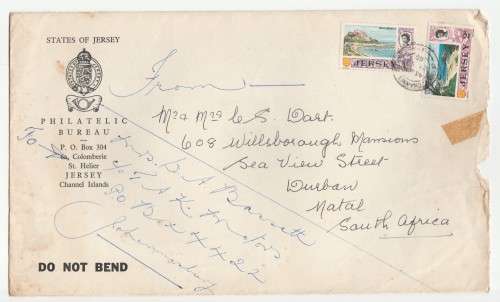 STATES OF JERSEY
PHILATELIC
BUREAU
P. O. Box 304
6a, Colomberie
St. Helier
JERSEY
Channel Islands
DO NOT BEND
JERSEY
JERSEY
From —
Mr & Mrs C S. Dart.
608 Willsborough Mansions
Sea View Street
Durban
Natal
South Africa
To
B A
A K Motors
PO Box 4422
Johannesburg